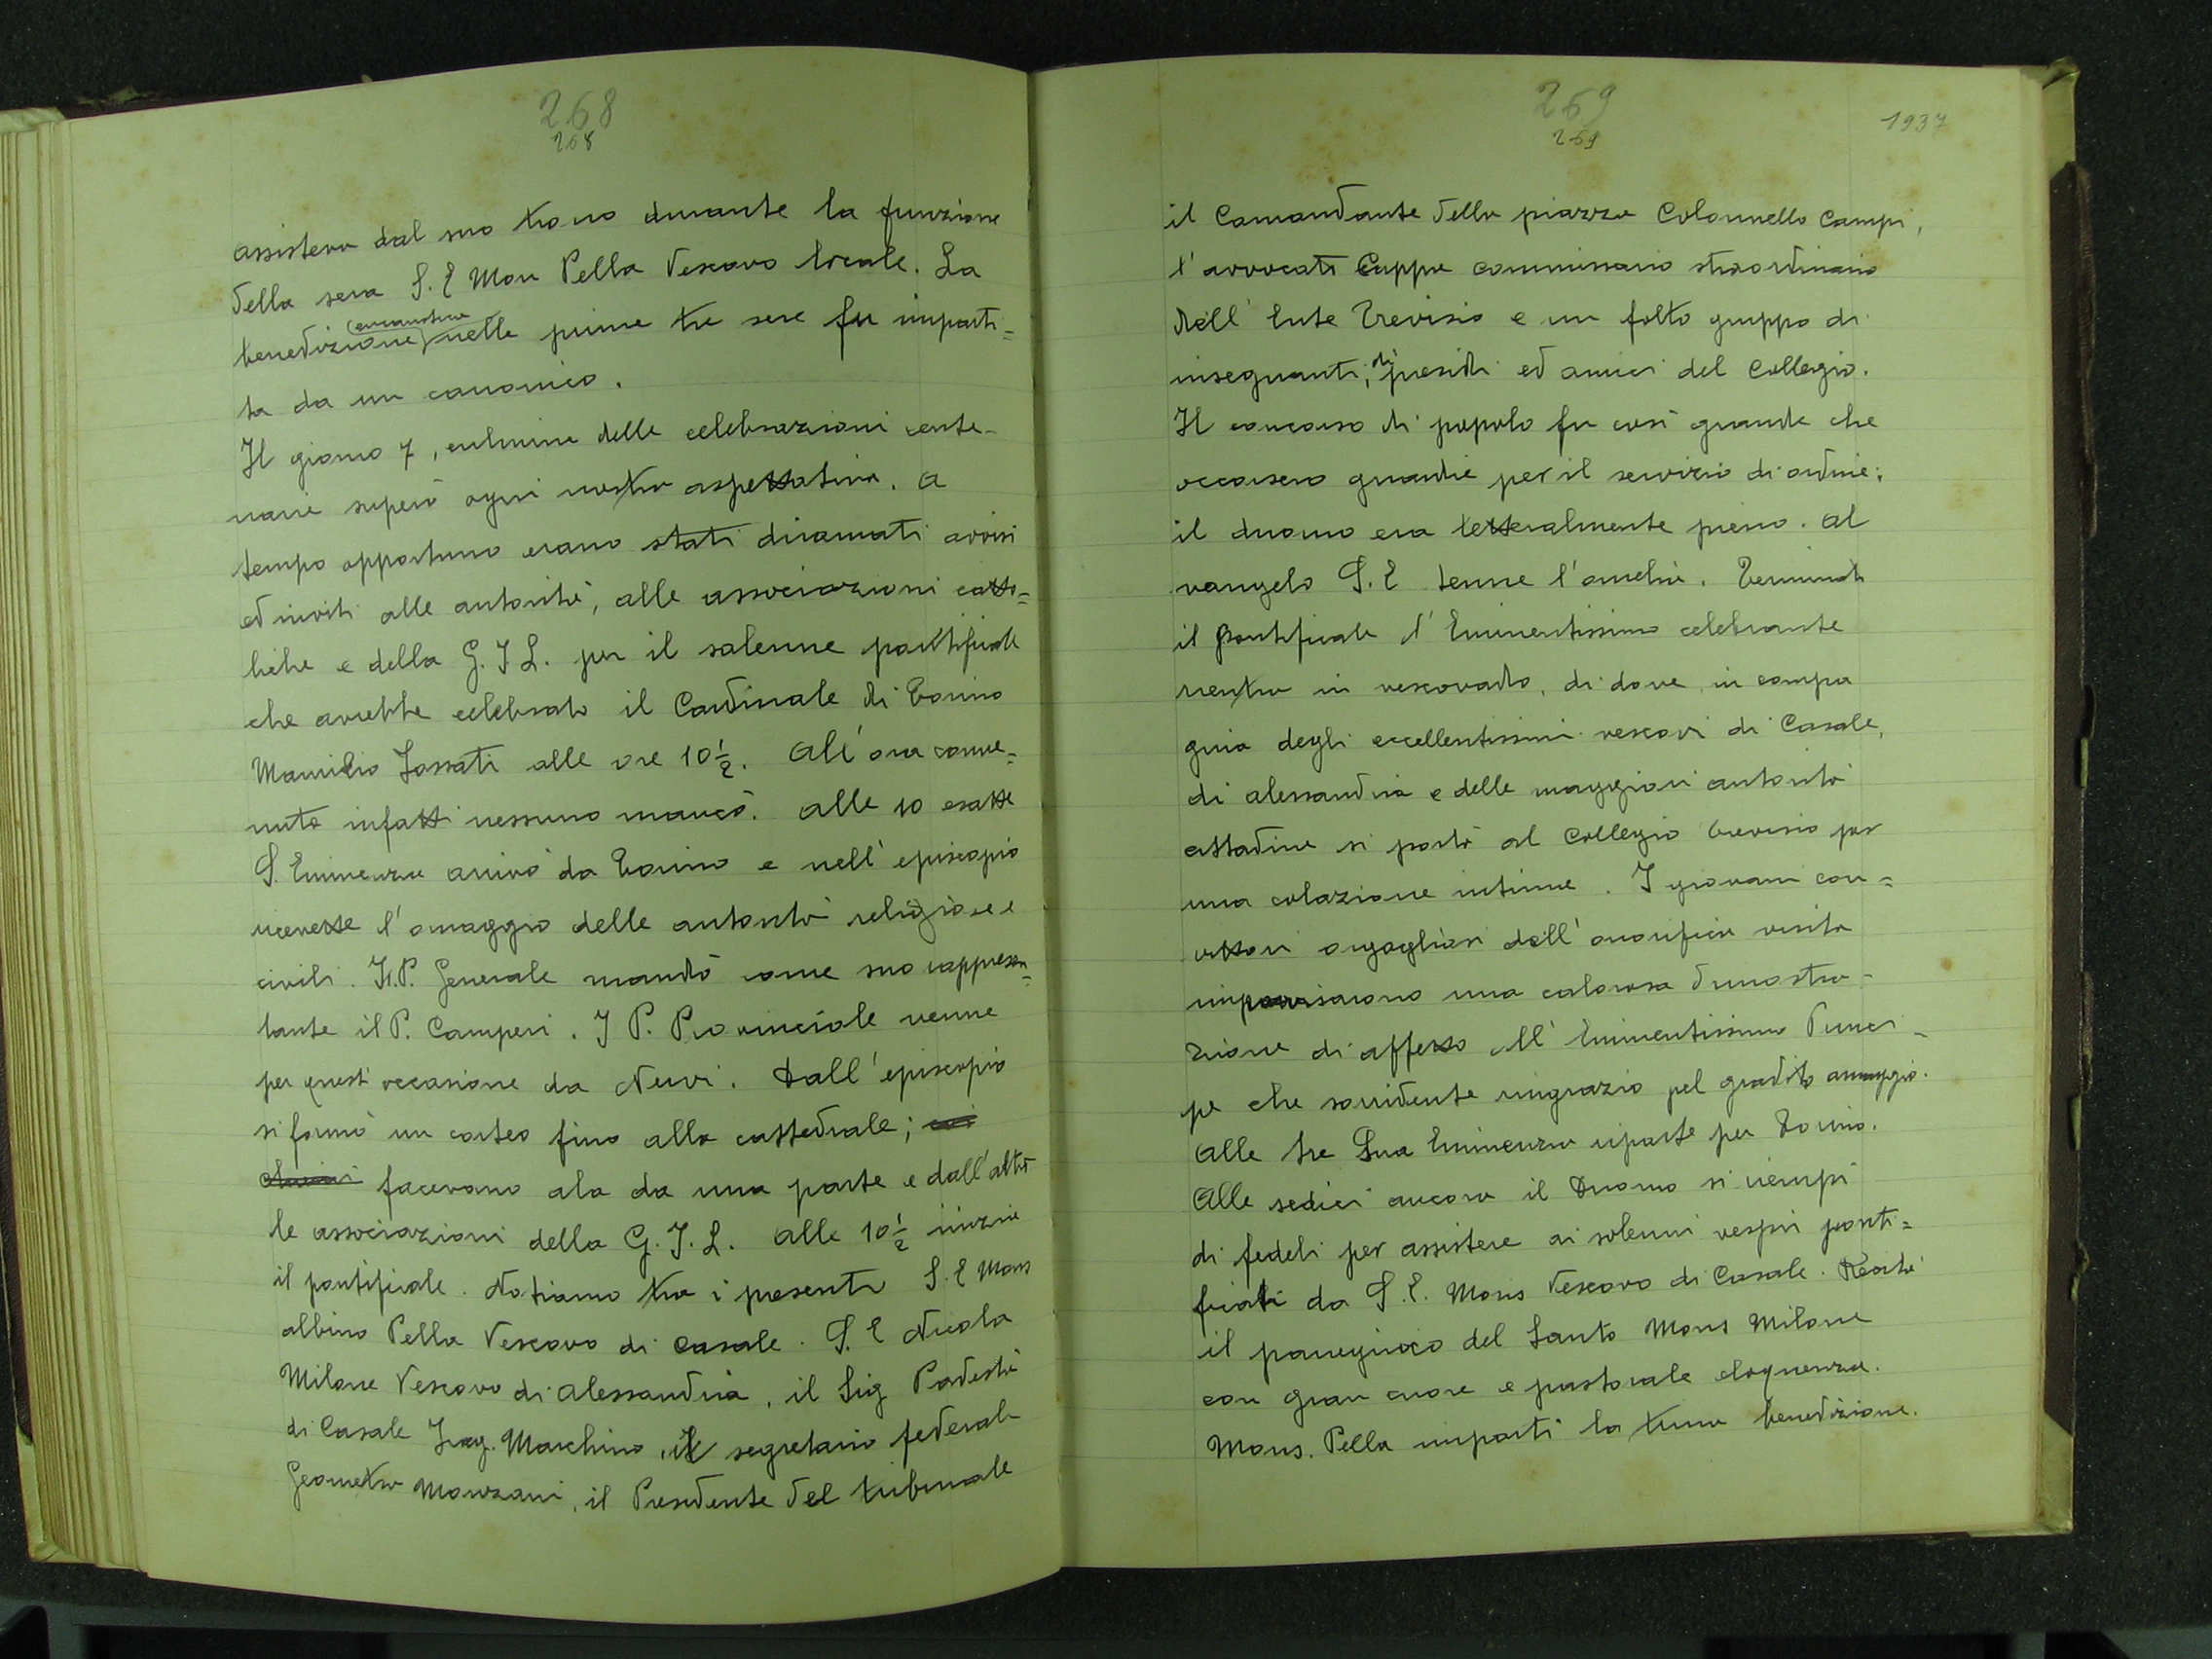 268
268
assisteva dal suo trono durante la funzione
della sera S. E Mon Pella Vescovo locale. La
benedizione (eucaristica) nelle prime tre sere fu imparti=
ta da un canonico.
Il giorno 7, culmine delle celebrazioni cente-
narie superò ogni nostra aspettativa. A
tempo opportuno erano stati diramati avvisi
ed inviti alle autorità, alle associazioni catto=
liche e della G. I L. per il solenne pontificale
che avrebbe celebrato il Cardinale di Torino
Maurilio Fossati alle ore 10 1/2. All'ora conve=
nuta infatti nessuno mancò. Alle 10 esatte
S. Eminenza arrivò da Torino e nell'episcopio
ricevette l'omaggio delle autorità religiose e
civili. Il P. Generale mandò come suo rappresen=
tante il P. Camperi. I P. Provinciale venne
per quest'occasione da Nervi. Dall'episcopio
si formò un corteo fino alla cattedrale;
facevano ala da una parte e dall'altra
le associazioni della G. I. L. Alle 10 1/2 inizia
il pontificale. Notiamo tra i presenti S. E Mons
Albino Pella Vescovo di Casale. S. E Nicola
Milone Vescovo di Alessandria, il Sig Podestà
di Casale Ing. Marchino, il segretario federale
Geometra Monzani, il Presidente del tribunale
269
269
1937
il Comandante della piazza Colonnello Campi,
l'avvocato Cappa commissario straordinario
dell'Ente Trevisio e un folto gruppo di
insegnanti, di presidi ed amici del Collegio.
Il concorso di popolo fu così grande che
occorsero guardie per il servizio di ordine;
il duomo era letteralmente pieno. Al
vangelo S. E tenne l'omelia. Terminato
il pontificale l'Eminentissimo celebrante
rientra in vescovado, di dove, in compa
gnia degli eccellentissimi vescovi di Casale,
di Alessandria e delle maggiori autorità
cittadine si portò al Collegio Trevisio per
una colazione intima. I giovani con=
vittori orgogliosi dell'onorifica visita
improvvisarono una calorosa dimostra-
zione di affetto all'Eminentissimo Princi-
pe che sorridente ringrazio pel gradito omaggio.
Alle tre Sua Eminenza riparte per Torino.
Alle sedici ancora il Duomo si riempì
di fedeli per assistere ai solenni vespri ponti=
ficati da S. E. Mons Vescovo di Casale. Recitò
il panegirico del Santo Mons Milone
con gran cuore e pastorale eloquenza.
Mons. Pella impartì la trina benedizione.